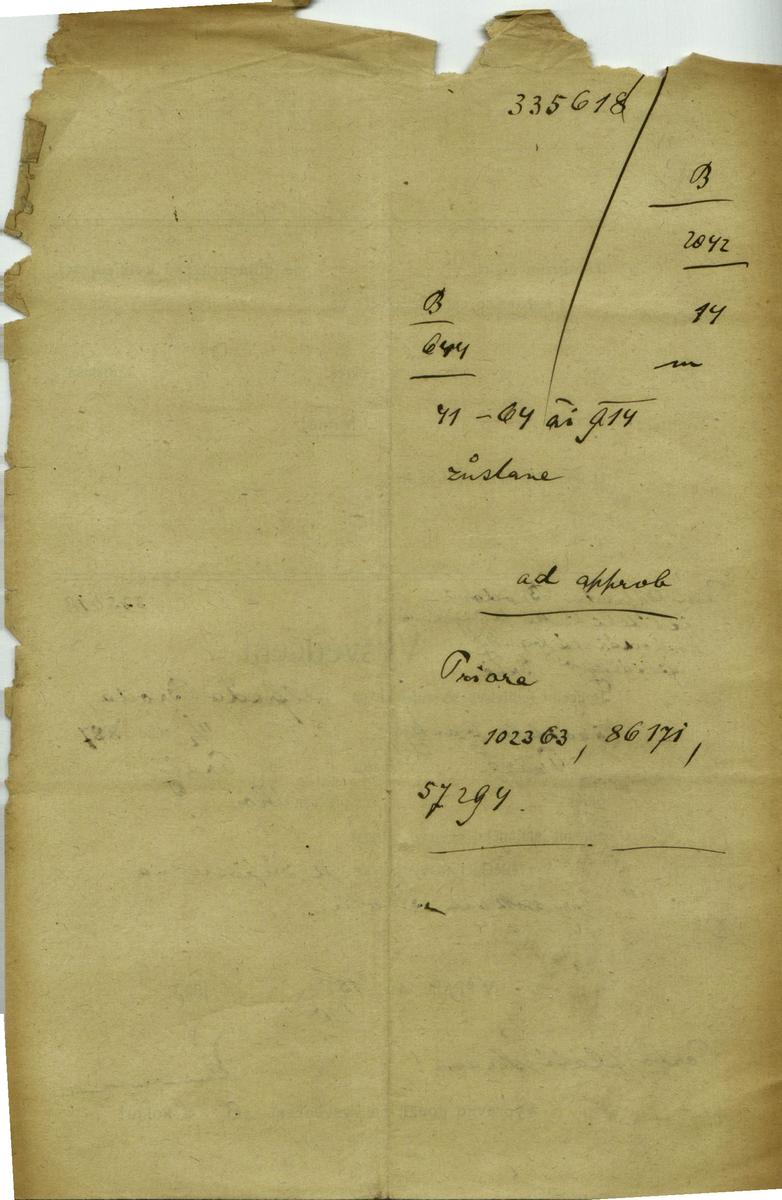 335618
B
2042
14
B
644
41 – 64 ai g14
zůstane
ad approb
Priora
102363, 86171,
57294